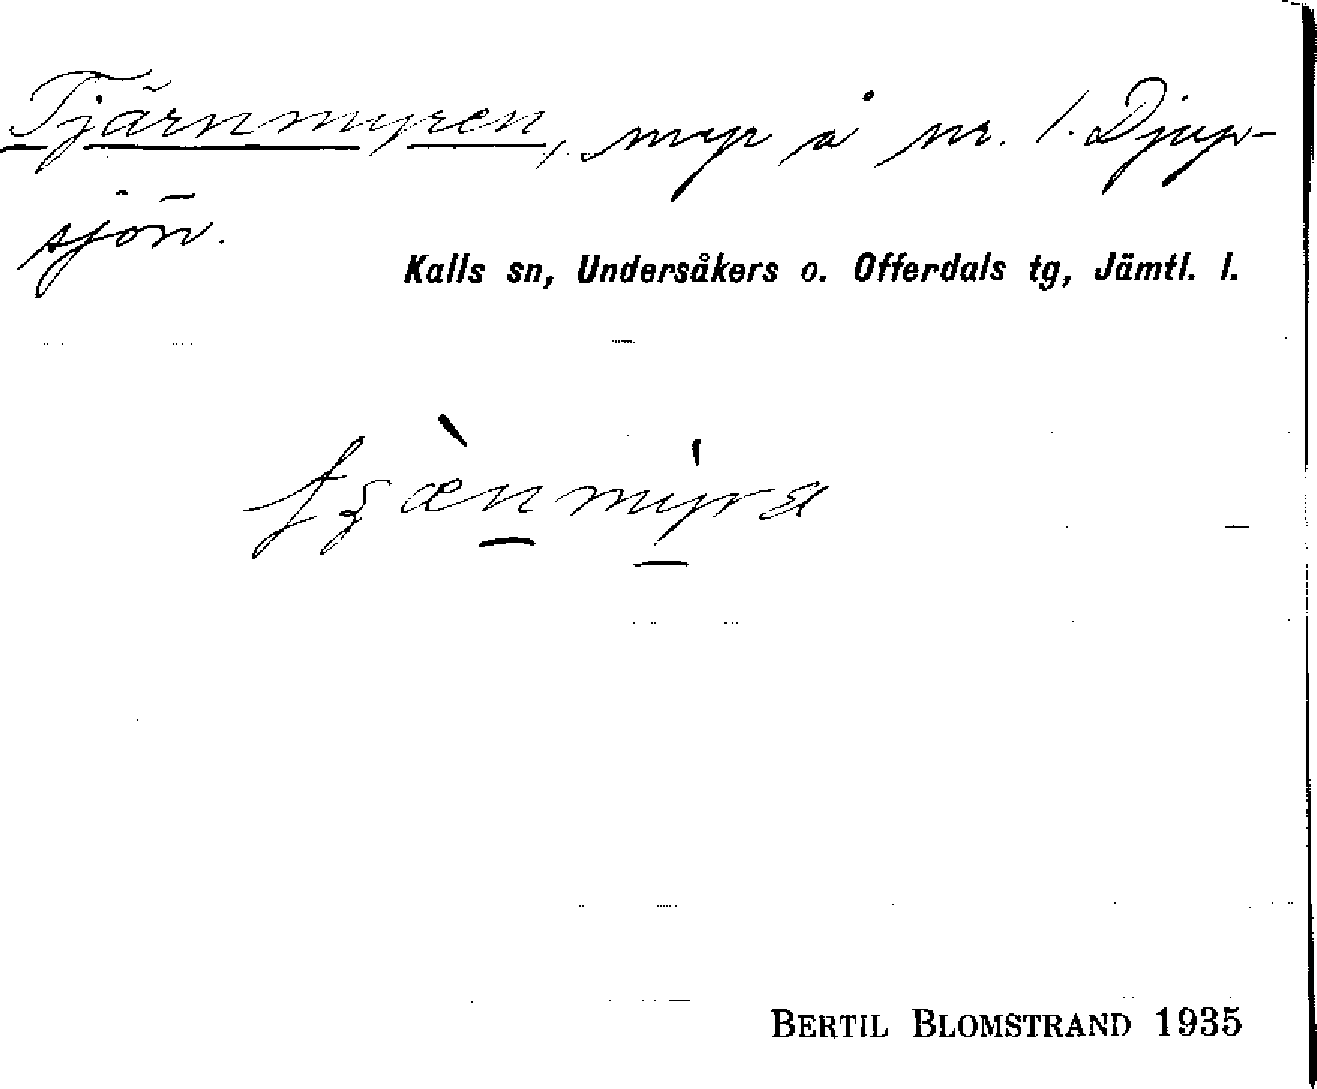 Tjärnmyren, myr å nr. 1. Djup-
sjön.
Kalls sn, Undersåkers o. Offerdals tg, Jämtl. l.
BERTIL BLOMSTRAND 1935